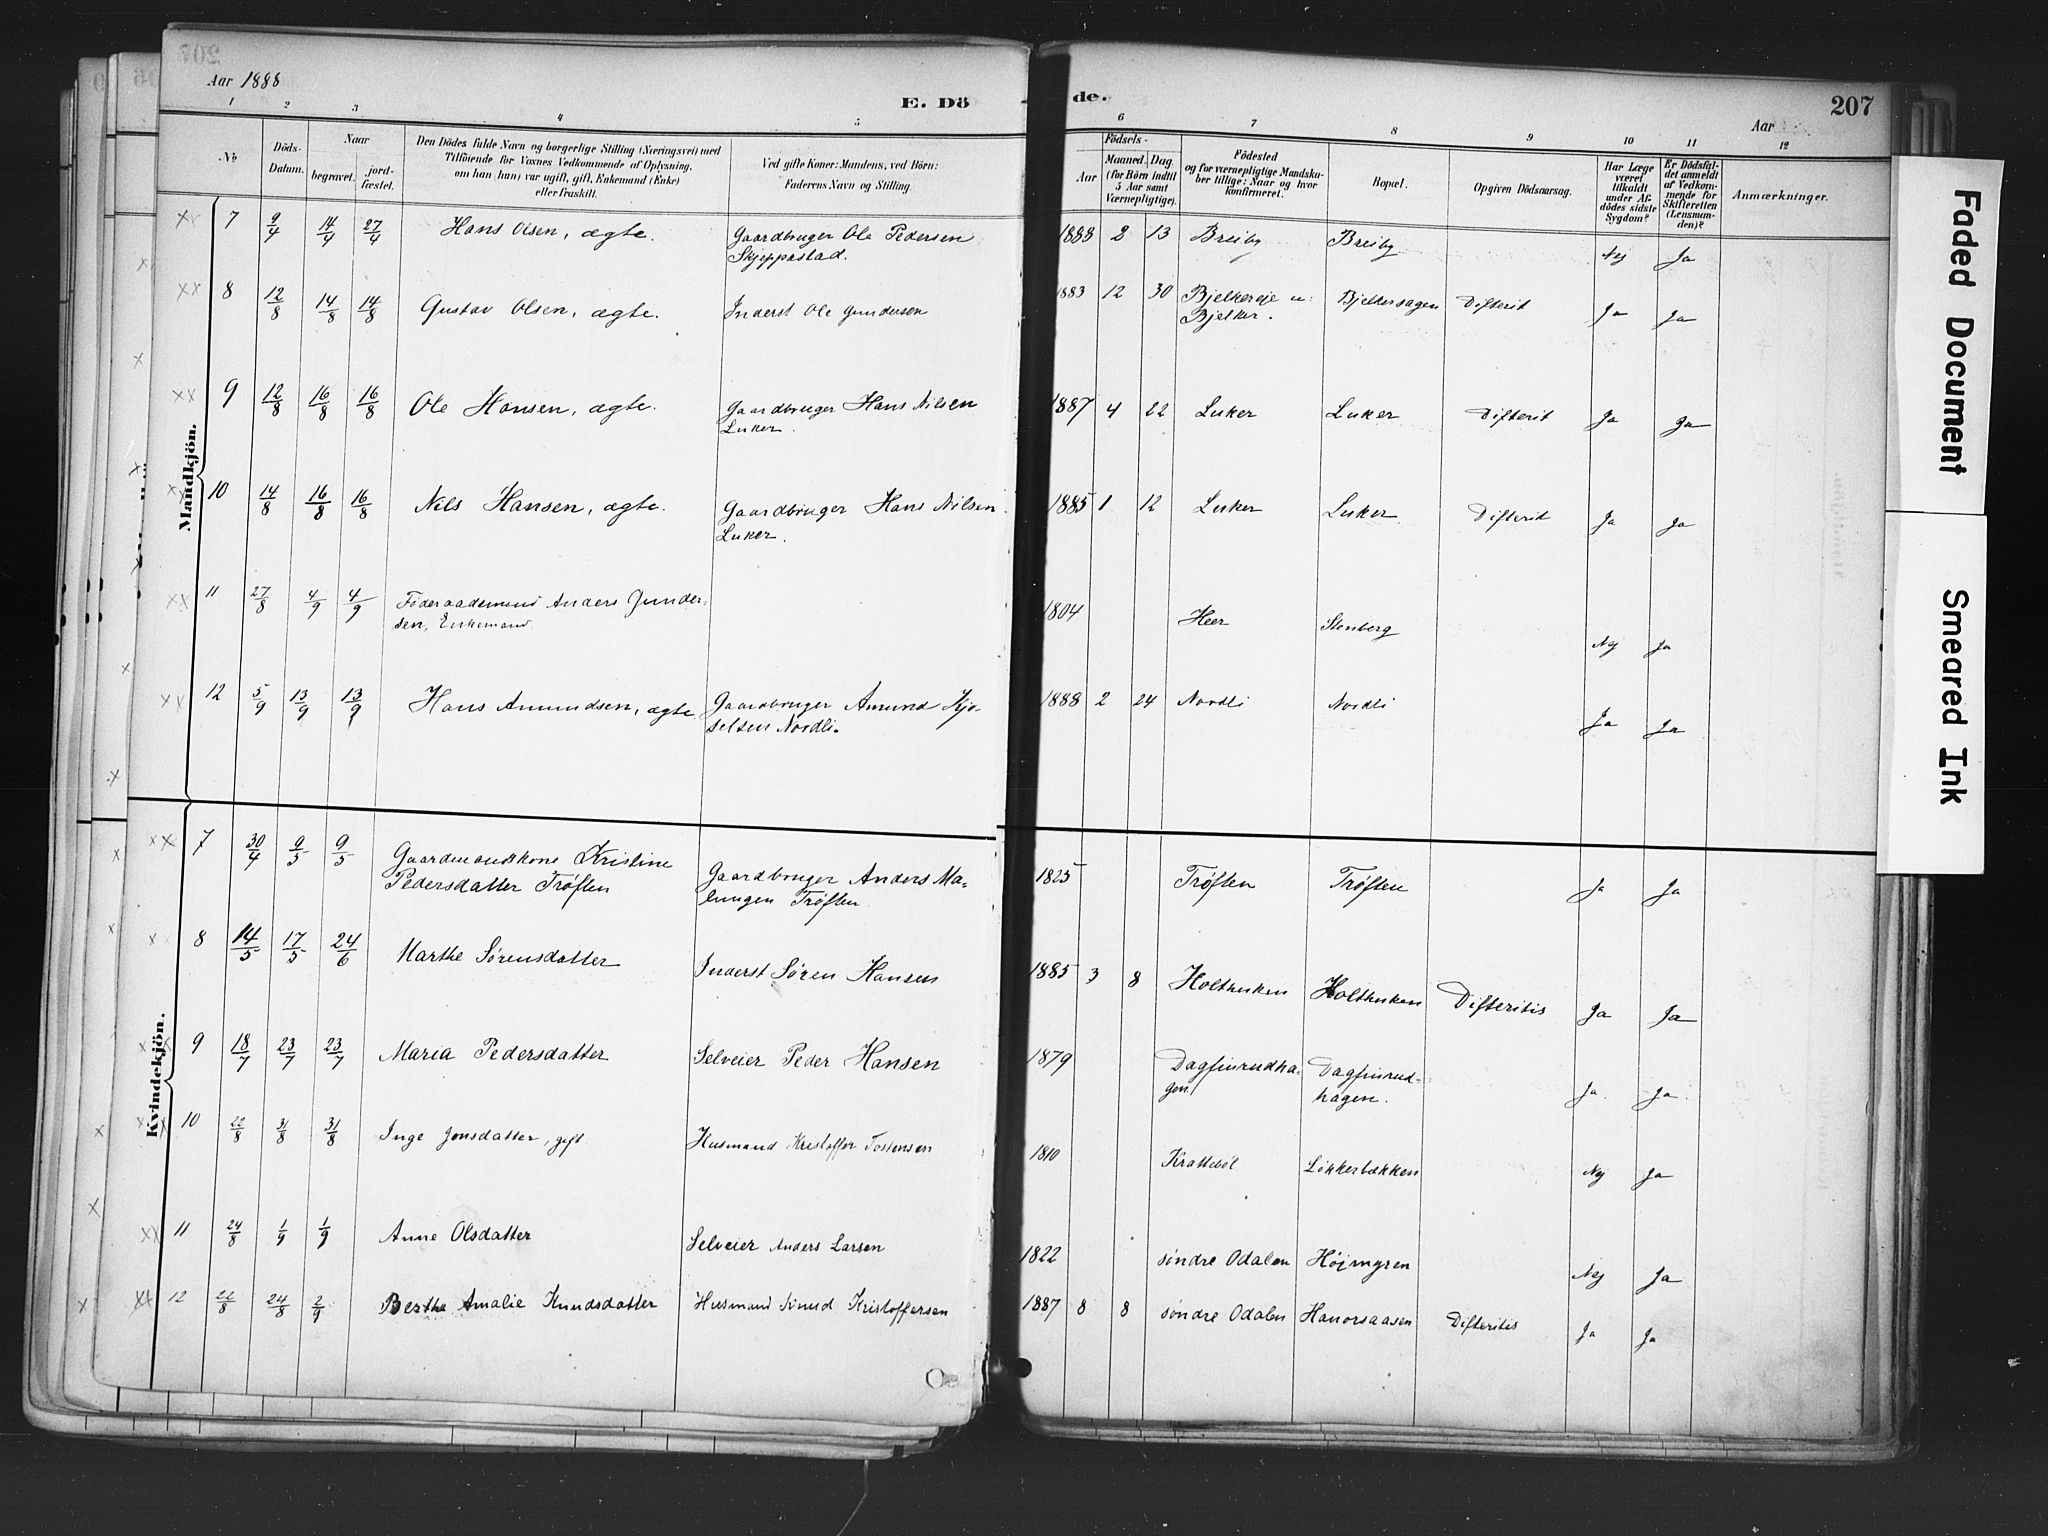 Aar 1888
E. Dö
de.
Aar
207
1 2 3 4 5 6 7 8 9 10 11 12
№
Döds-Datum.
Naar
begravet.
jord-fæstet.
Den Dödes fulde Navn og borgerlige Stilling (Næringsvei) med
Tilföiende for Voxnes Vedkommende af Oplysning,
om han (hun) var ugift, gift, Enkemand (Enke)
eller fraskilt.
Ved gifte Koner: Mandens, ved Börn:
Faderens Navn og Stilling.
Födsels-
Aar
Maaned. Dag.
(for Börn indtil
5 Aar samt
Værnepligtige).
Födested
og for værnepligtige Mandska-
ber tillige: Naar og hvor
konfirmeret.
Bopæl.
Opgiven Dödsaarsag.
Har Læge
været
tilkaldt
under Af-
dödes sidste
Sygdom?
Er Dödsfal-
det anmeldt
af Vedkom-
mende for
Skifteretten
(Lensman-
den)?
Anmærkninger.
Mandkjön.
7 9/4 14/4 27/4 Hans Olsen, ægte. Gaardbruger Ole Pedersen 1888 2 13 Breiby Breiby Nej Ja
Skjeppastad.
8 12/8 14/8 14/8 Gustav Olsen, ægte. Inderst Ole Gundersen 1883 12 30 Bjelkereje u: Bjelkersagen Difterit Ja Ja
Bjelker.
9 12/8 16/8 16/8 Ole Hansen, ægte. Gaardbruger Hans Nilsen 1887 4 22 Luker Luker Difterit Ja Ja
Luker.
10 14/8 16/8 16/8 Nils Hansen, ægte. Gaardbruger Hans Nilsen 1885 1 12 Luker Luker Difterit Ja Ja
Luker.
11 27/8 4/9 4/9 Føderaadsmand Anders Gunder- 1804 Heer Stenberg Nej Ja
sen, Enkemand.
12 5/9 13/9 13/9 Hans Amundsen, ægte Gaardbruger Amund Kjø- 1888 2 24 Nordli Nordli Ja Ja
selsen Nordli.
Kvindekjön.
7 30/4 9/5 9/5 Gaardmandskone Kristine Gaardbruger Anders Ma- 1825 Trøften Trøften Ja Ja
Pedersdatter Trøften lungen Trøften.
8 14/5 17/5 24/6 Marthe Sørensdatter Inderst Søren Hansen 1885 3 8 Holthusken Holthusken Difteritis Ja Ja
9 18/7 23/7 23/7 Maria Pedersdatter Selveier Peder Hansen 1879 Dagfinrudha- Dagfinrud- Ja. Ja.
gen hagen.
10 22/8 31/8 31/8 Inge Jonsdatter, gift Husmand Kristoffer Tostensen 1810 Krattebøl Løkkerbækken Nej Ja
11 24/8 1/9 1/9 Anne Olsdatter Selveier Anders Larsen 1822 søndre Odalen Højmyren Nej Ja
12 22/8 24/8 2/9 Berthe Amalie Knudsdatter Husmand Knud Kristoffersen 1887 8 8 søndre Odalen Hanorsaasen Difteritis Ja Ja
Faded Document
Smeared Ink